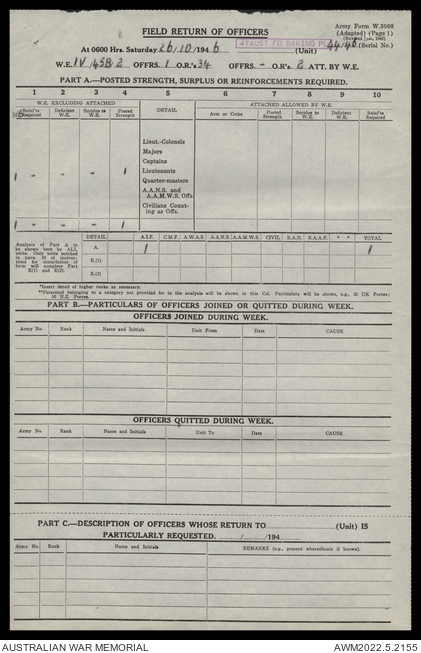 Army Form W.3008
(Adapted) (Page 1)
(Serial No.)
FIELD RETURN OF OFFICERS
At 0600 Hrs. Saturday 26/10/1946 47 AUST FD BAKING PL (Unit)
W.E. IV/45B/2 OFFRS. 1 O.R's. 34 OFFRS. - O.R's. 2 ATT. BY W.E.
PART A.—POSTED STRENGTH, SURPLUS OR REINFORCEMENTS REQUIRED.
1 2 3 4 5 6 7 8 9 10
W.E. EXCLUDING ATTACHED
DETAIL
ATTACHED ALLOWED BY W.E.
Reinf'ts Required
Deficient W.E.
Surplus to W.E.
Posted Strength
Arm or Corps
Posted Strength
Surplus to W.E.
Deficient W.E.
Reinf'ts Required
Lieut.-Colonels
Majors
Captains
1 - - 1 Lieutenants
Quarter-masters
A.A.N.S. and
A.A.M.W.S. Offs.
Civilians Count-
ing as Offs.
1 - - 1
Analysis of Part A to
be shown here by ALL
units. Only units notified
in para. 10 of instruc-
tions for compilation of
form will complete Part
E(1) and E(2).
DETAIL A.I.F. C.M.F. A.W.A.S. A.A.N.S. A.A.M.W.S. CIVIL R.A.N. R.A.A.F. * * TOTAL
A. 1 1
E.(1)
E.(2)
*Insert detail of higher ranks as necessary.
**Personnel belonging to a category not provided for in the analysis will be shown in this Col. Particulars will be shown, e.g., 20 UK Forces;
10 N.Z. Forces.
PART B.—PARTICULARS OF OFFICERS JOINED OR QUITTED DURING WEEK.
OFFICERS JOINED DURING WEEK.
Army No. Rank Name and Initials Unit From Date CAUSE
OFFICERS QUITTED DURING WEEK.
Army No. Rank Name and Initials Unit To Date CAUSE
PART C.—DESCRIPTION OF OFFICERS WHOSE RETURN TO (Unit) IS
PARTICULARLY REQUESTED. / /194
Army No. Rank Name and Initials REMARKS (e.g., present whereabouts if known).
AUSTRALIAN WAR MEMORIAL AWM2022.5.2155